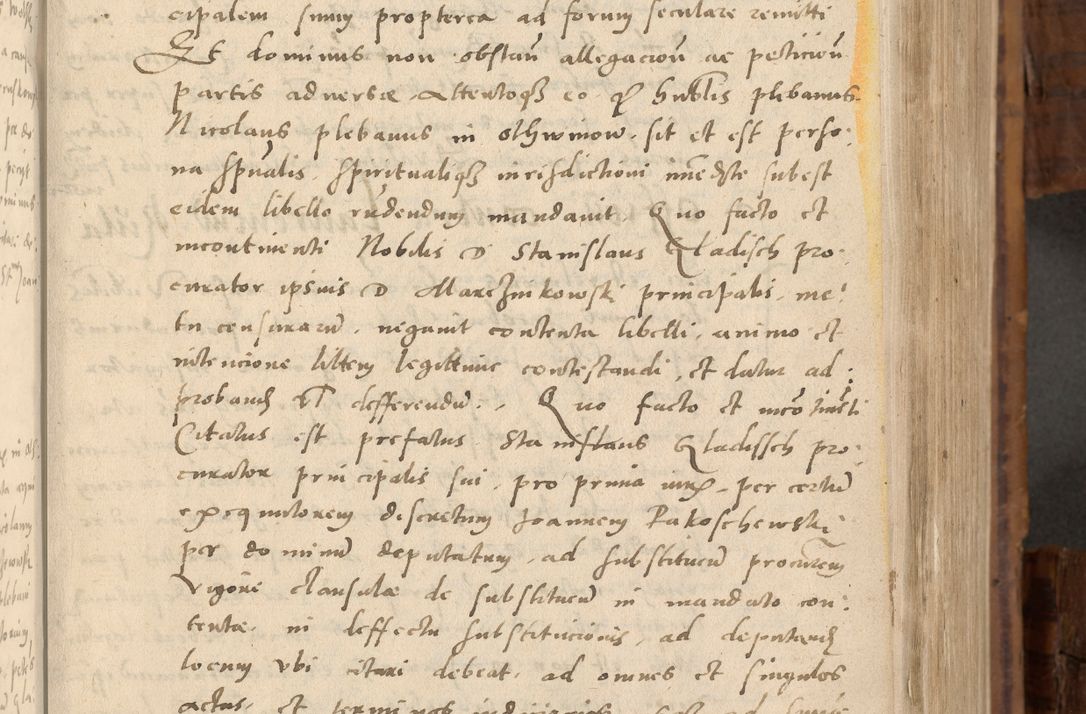 cipalem suum propterea ad forum seculare remitti
Et dominus non obstan̄ allegacion̄ ac peticion̄
partis adversæ Attentoq₃ eo q̄ Hn̄blis plebanus
Nicolaus plebanus in Othwinow. sit et est perso:
na spūalis. spiritualiq₃ iurisdictioni im̄ed̄te subest
eidem libello rūdendum mandavit. Quo facto et
incontinenti Nobilis D Stanislaus Gladisch pro:
curator ipsius D Marczinkowski principalis. me:
tu censurarū. negavit contenta libelli. animo et
intencione littem legittime contestandi, et datur ad:
proband̄ et defferendū. Quo facto et incōtinēti
Citatus est prefatus Stanislaus Gladissch pro:
curator principalis sui, pro prima per certū
exequutorem discretum Joannem Rakoschewski
per dominū deputatum. ad substituen̄ procurem̄
Vigore clausulæ de substituen̄ in mandato con:
tentæ. in deffectu substitucionis, ad deputand̄
locum vbi citari debeat. ad omnes et singulos
actus, et terminos